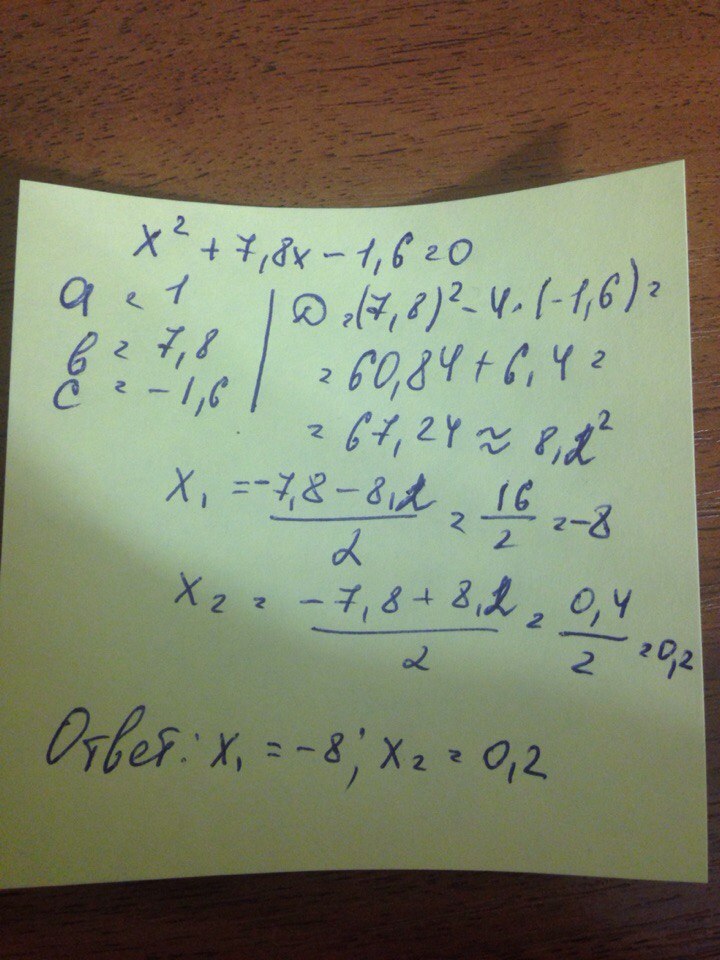 x² + 7,8x - 1,6 = 0
a = 1
в = 7,8
c = -1,6
D = (7,8)² - 4 · (-1,6) =
= 60,84 + 6,4 =
= 67,24 ≈ 8,2²
x₁ = (-7,8 - 8,2)/2 = 16/2 = -8
x₂ = (-7,8 + 8,2)/2 = 0,4/2 = 0,2
Ответ: x₁ = -8; x₂ = 0,2